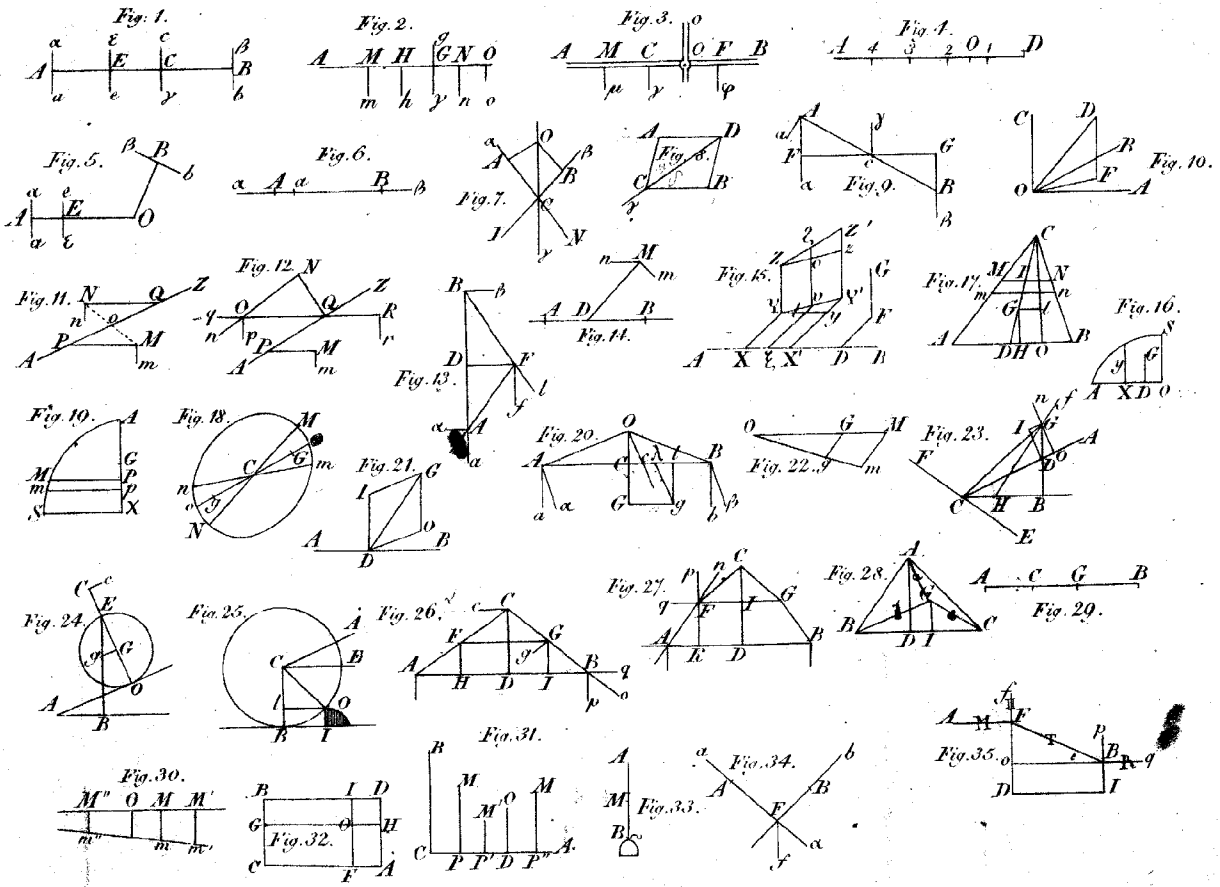 Fig. 1.
α ε c β
A E C B
a e γ b
Fig. 2.
g
A M H G N O
m h γ n o
Fig. 3.
o
A M C O F B
μ γ φ
Fig. 4.
A 4 3 2 O 1 D
Fig. 5.
β B
b
α e
A E O
a ε
Fig. 6.
α A a B β
Fig. 7.
α O β
A B
C
I N
γ
Fig. 8.
A D
C B
γ
Fig. 9.
A γ
a G
F c
α B
β
Fig. 10.
C D
R
F
O A
Fig. 11.
N Q Z
n o
P M
A m
Fig. 12.
N Z
q O Q R
n p r
P M
A m
Fig. 13.
B β
D F
f l
α A
a
Fig. 14.
n M
m
A D B
Fig. 15.
Z'
Z z G
o
Y v Y' F
t y
A X ξ X' D B
Fig. 17.
C
M I N
m n
G l
A D H O B
Fig. 16.
S
y G
A X D O
Fig. 19.
A
G
M P
m p
S X
Fig. 18.
M
C G m
n
o g
N
Fig. 21.
I G
O
A D B
Fig. 20.
O
A C l B
G g
a α b β
Fig. 22.
O G M
g m
Fig. 23.
n f
I G
A
F D O
C H B
E
Fig. 24.
C c
E
g G
A O
B
Fig. 25.
A
C E
l O
B I
Fig. 26.
c C
F G
g
A H D I B q
p o
Fig. 27.
p n C
q F I G
A K D B
Fig. 28.
A
a
G
B D I C
Fig. 29.
A C G B
Fig. 30.
M'' O M M'
m'' m m'
Fig. 32.
B I D
G O H
C F A
Fig. 31.
B
M M' O M
C P P' D P'' A
Fig. 33.
A
M
B
Fig. 34.
a b
A B
F
f α
Fig. 35.
f
A M F
T p
o B R q
D I